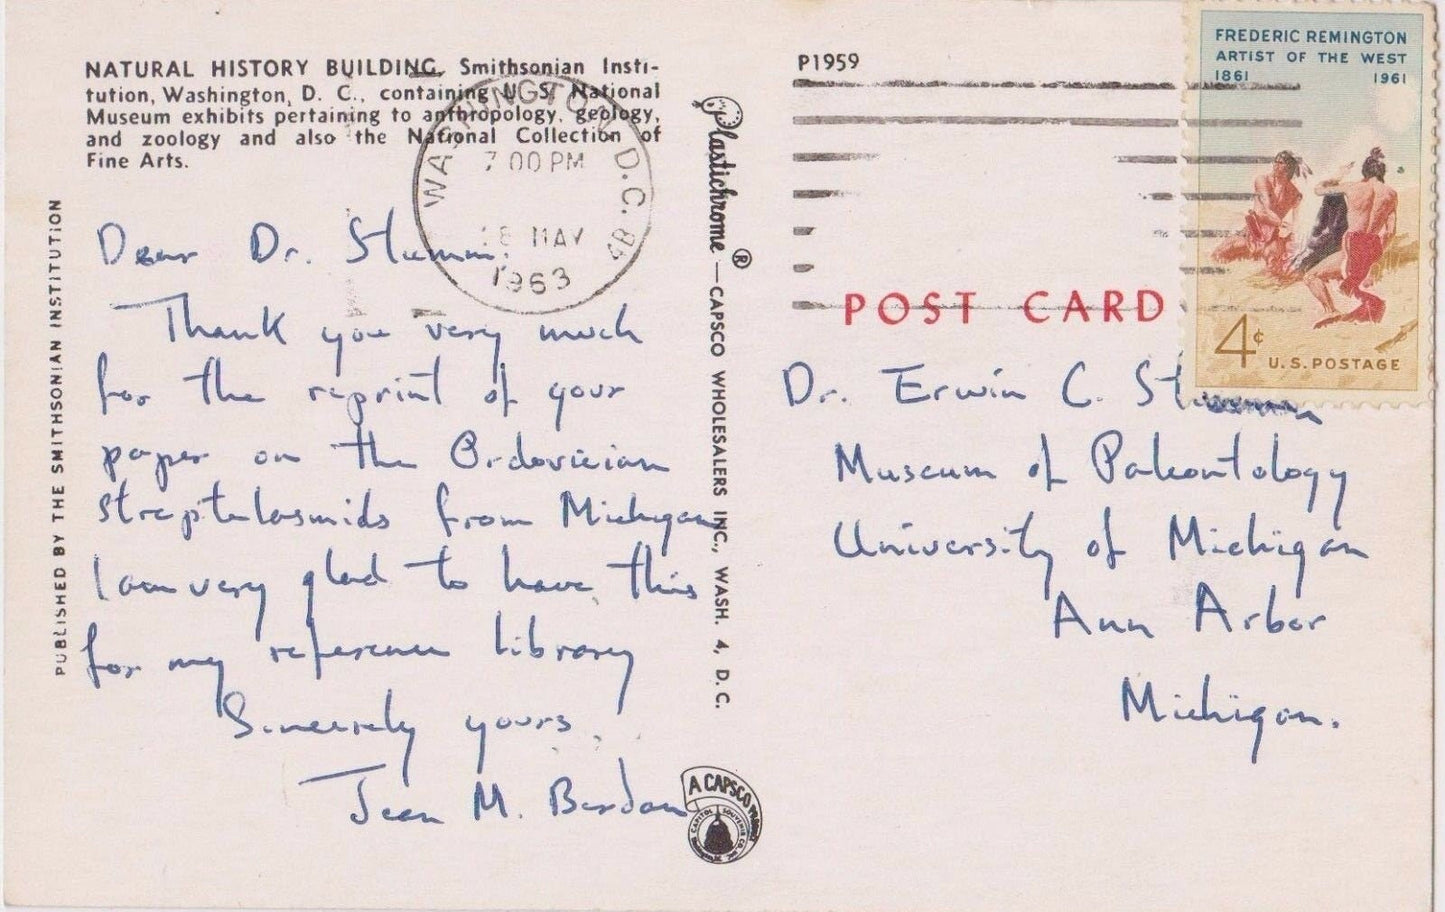 NATURAL HISTORY BUILDING, Smithsonian Insti-
tution, Washington, D. C., containing U. S. National
Museum exhibits pertaining to anthropology, geology,
and zoology and also the National Collection of
Fine Arts.
PUBLISHED BY THE SMITHSONIAN INSTITUTION
WASHINGTON D.C.
7 00 PM
18 MAY
1963
Dear Dr. Stumm:
Thank you very much
for the reprint of your
paper on the Ordovician
streptelasmids from Michigan
I am very glad to have this
for my reference library
Sincerely yours,
Jean M. Berdan
Plastichrome ® — CAPSCO WHOLESALERS INC., WASH. 4, D.C.
A CAPSCO PRODUCT
P1959
FREDERIC REMINGTON
ARTIST OF THE WEST
1861 1961
4¢ U.S. POSTAGE
POST CARD
Dr. Erwin C. Stumm
Museum of Paleontology
University of Michigan
Ann Arbor
Michigan.